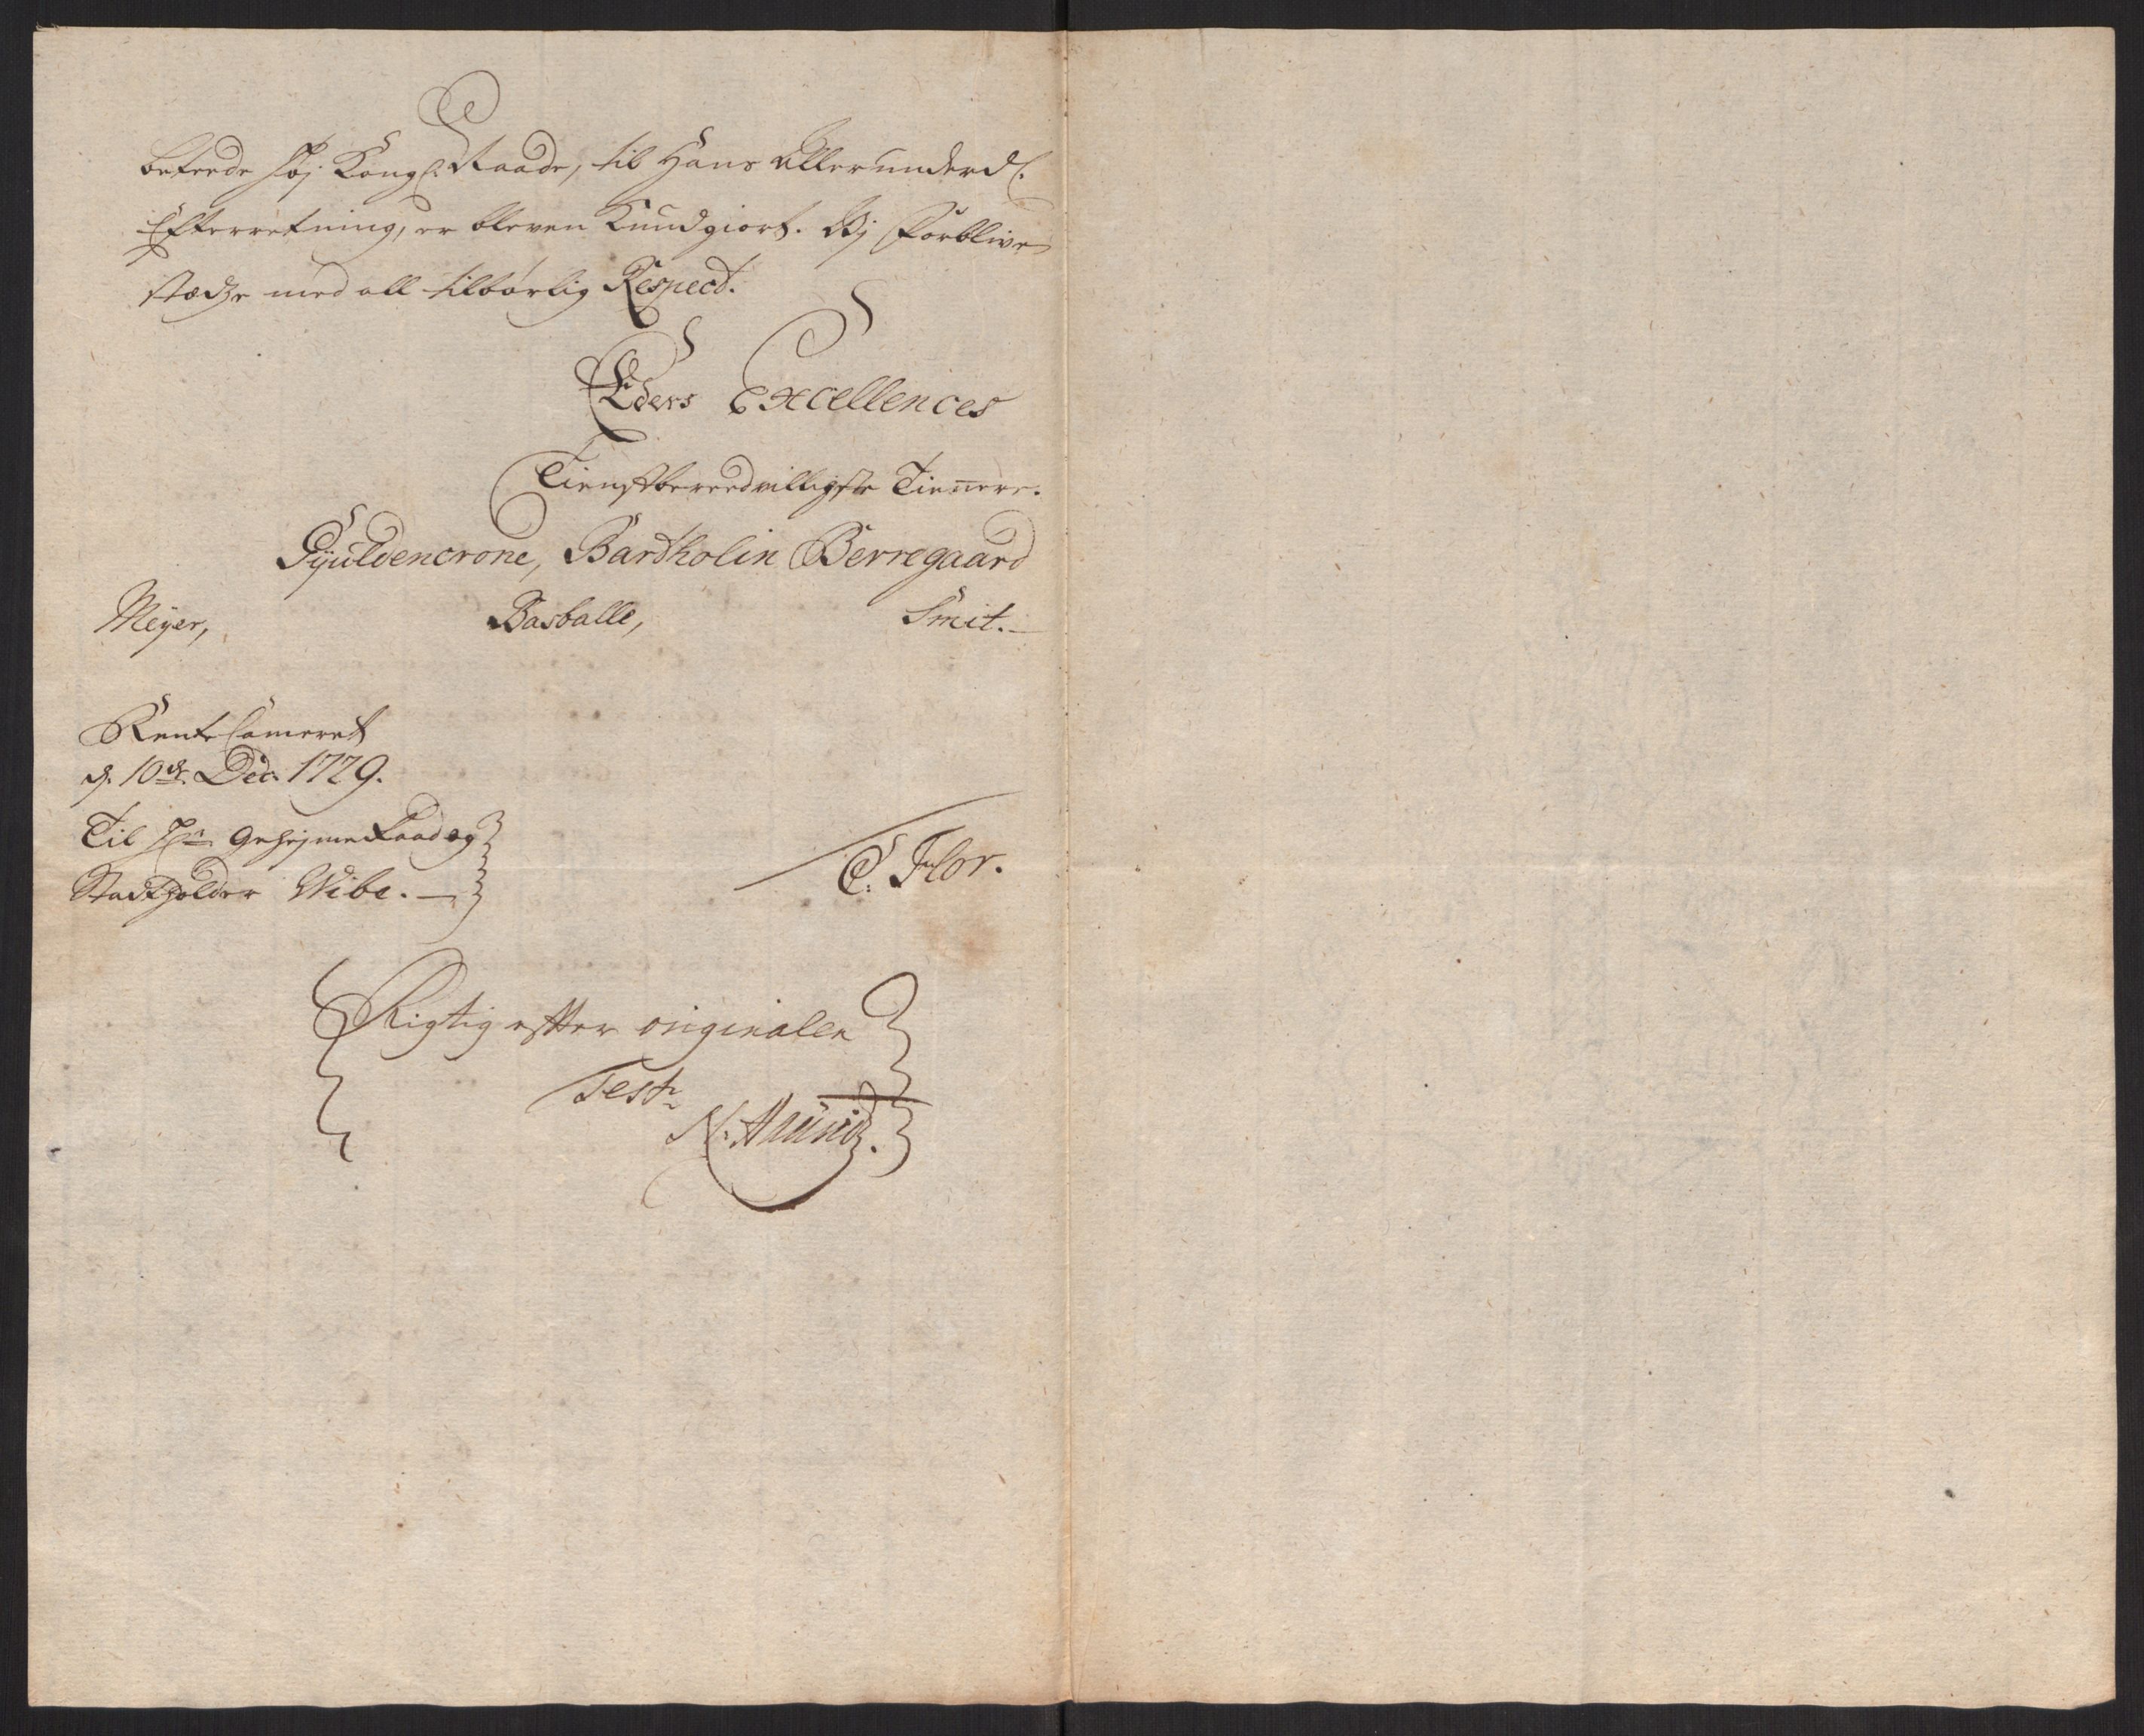 beteede høj Kongl: Naade, til Hans Allerunderd:
Efterretning, er bleven Kundgiort. Vj Forblive
stædze med all tilbørlig Respect.
Eders Excellences
Tienstbereedvilligste Tienere.
Gyuldencrone, Bartholin Berregaard
Meyer, Basballe, Smit.
RenteCameret
d. 10de Dec: 1729.
Til Hr. Gehejme Raad og
Stadtholder Wibe.
C: Flor.
Rigtig efter originalen
Test: